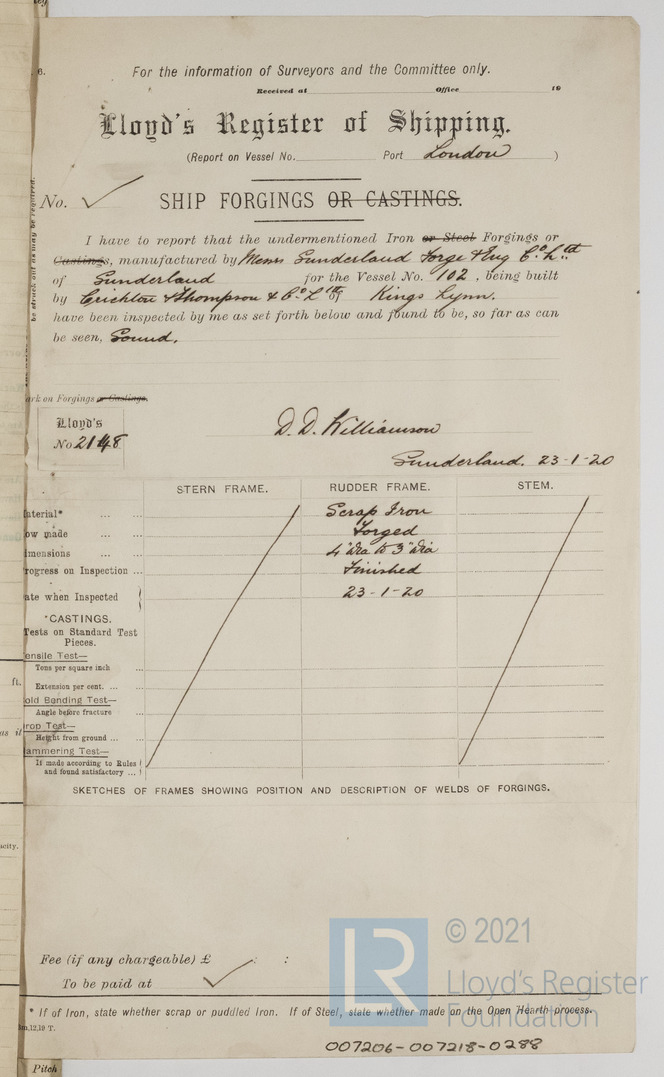 6.
For the information of Surveyors and the Committee only.
Received at Office 19
Lloyd's Register of Shipping.
(Report on Vessel No. Port London )
No. ✓ SHIP FORGINGS OR CASTINGS.
be struck out as may be required.
I have to report that the undermentioned Iron or Steel Forgings or
Castings, manufactured by Messrs Sunderland Forge & Eng Co. Ltd
of Sunderland for the Vessel No. 102, being built
by Crichton Thompson & Co Ltd of Kings Lynn.
have been inspected by me as set forth below and found to be, so far as can
be seen, Sound.
ark on Forgings or Castings.
Lloyd's
No 2148
D. D. Williamson
Sunderland. 23-1-20
STERN FRAME. RUDDER FRAME. STEM.
aterial* ... ... Scrap Iron
ow made ... ... Forged
imensions ... ... 4" dia to 3" dia
rogress on Inspection ... Finished
ate when Inspected 23-1-20
*CASTINGS.
Tests on Standard Test
Pieces.
ensile Test—
Tons per square inch ...
Extension per cent. ... ...
old Bending Test—
Angle before fracture ...
rop Test—
Height from ground ... ...
ammering Test—
If made according to Rules
and found satisfactory ...
SKETCHES OF FRAMES SHOWING POSITION AND DESCRIPTION OF WELDS OF FORGINGS.
ft.
as it
acity.
Fee (if any chargeable) £ : :
To be paid at ✓
* If of Iron, state whether scrap or puddled Iron. If of Steel, state whether made on the Open Hearth process.
12,10 T.
007206-007218-0288
Pitch
LR
© 2021
Lloyd's Register
Foundation